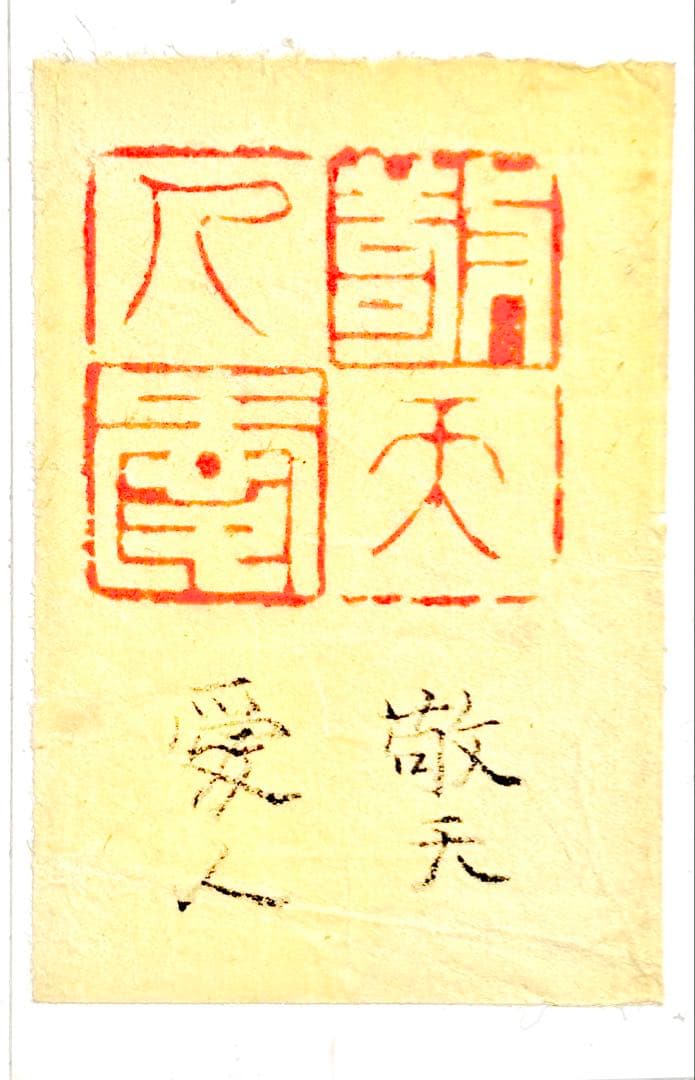 敬天
愛人
敬天
愛人